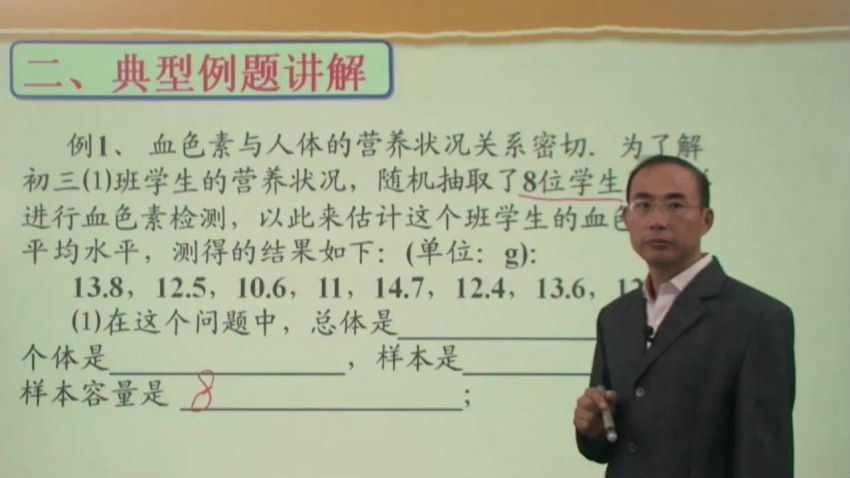 二、典型例题讲解
例1、 血色素与人体的营养状况关系密切. 为了解
初三(1)班学生的营养状况，随机抽取了8位学生
进行血色素检测，以此来估计这个班学生的血色
平均水平，测得的结果如下：(单位：g):
13.8，12.5，10.6，11，14.7，12.4，13.6，
(1)在这个问题中，总体是
个体是 ，样本是
样本容量是 8 ;